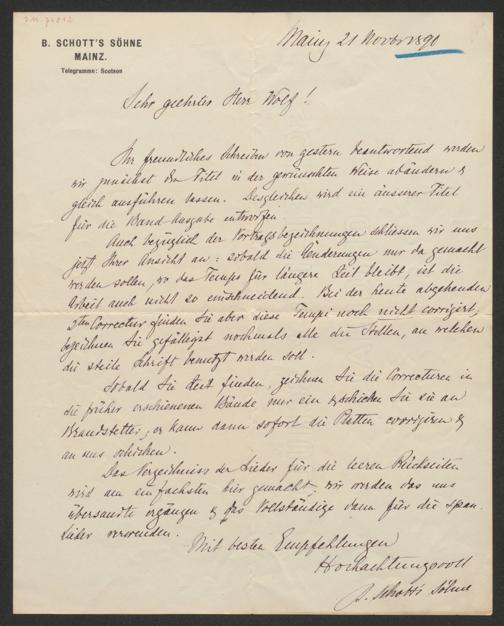 B. SCHOTT'S SÖHNE
MAINZ.
Telegramme: Scotson
Mainz 21 Novbr 1890
Sehr geehrter Herr Wolf!
Ihr freundliches Schreiben von gestern beantwortend werden
wir zunächst den Titel in der gewünschten Weise abändern &
gleich ausführen lassen. Desgleichen wird ein äusserer Titel
für die Band-Ausgabe entworfen.
Auch bezüglich der Vortragsbezeichnungen schliessen wir uns
jetzt Ihrer Ansicht an: sobald die Änderungen nur da gemacht
werden sollen, wo das Tempo für längere Zeit bleibt, ist die
Arbeit auch nicht so einschneidend. Bei der heute abgehenden
Correctur finden Sie aber diese Tempi noch nicht corrigirt,
bezeichnen Sie gefälligst nochmals alle die Stellen, an welchen
die steile Schrift benutzt werden soll.
Sobald Sie Zeit finden, zeichnen Sie die Correcturen in
die früher erschienenen Bände nur ein & schicken Sie sie an
Brandstetter, er kann dann sofort die Platten corrigiren &
an uns schicken.
Das Verzeichniss der Lieder für die leeren Rückseiten
wird am einfachsten hier gemacht, wir werden das uns
übersandte ergänzen & das Vollständige dann für die span.
Lieder verwenden.
Mit besten Empfehlungen
Hochachtungsvoll
B. Schott's Söhne